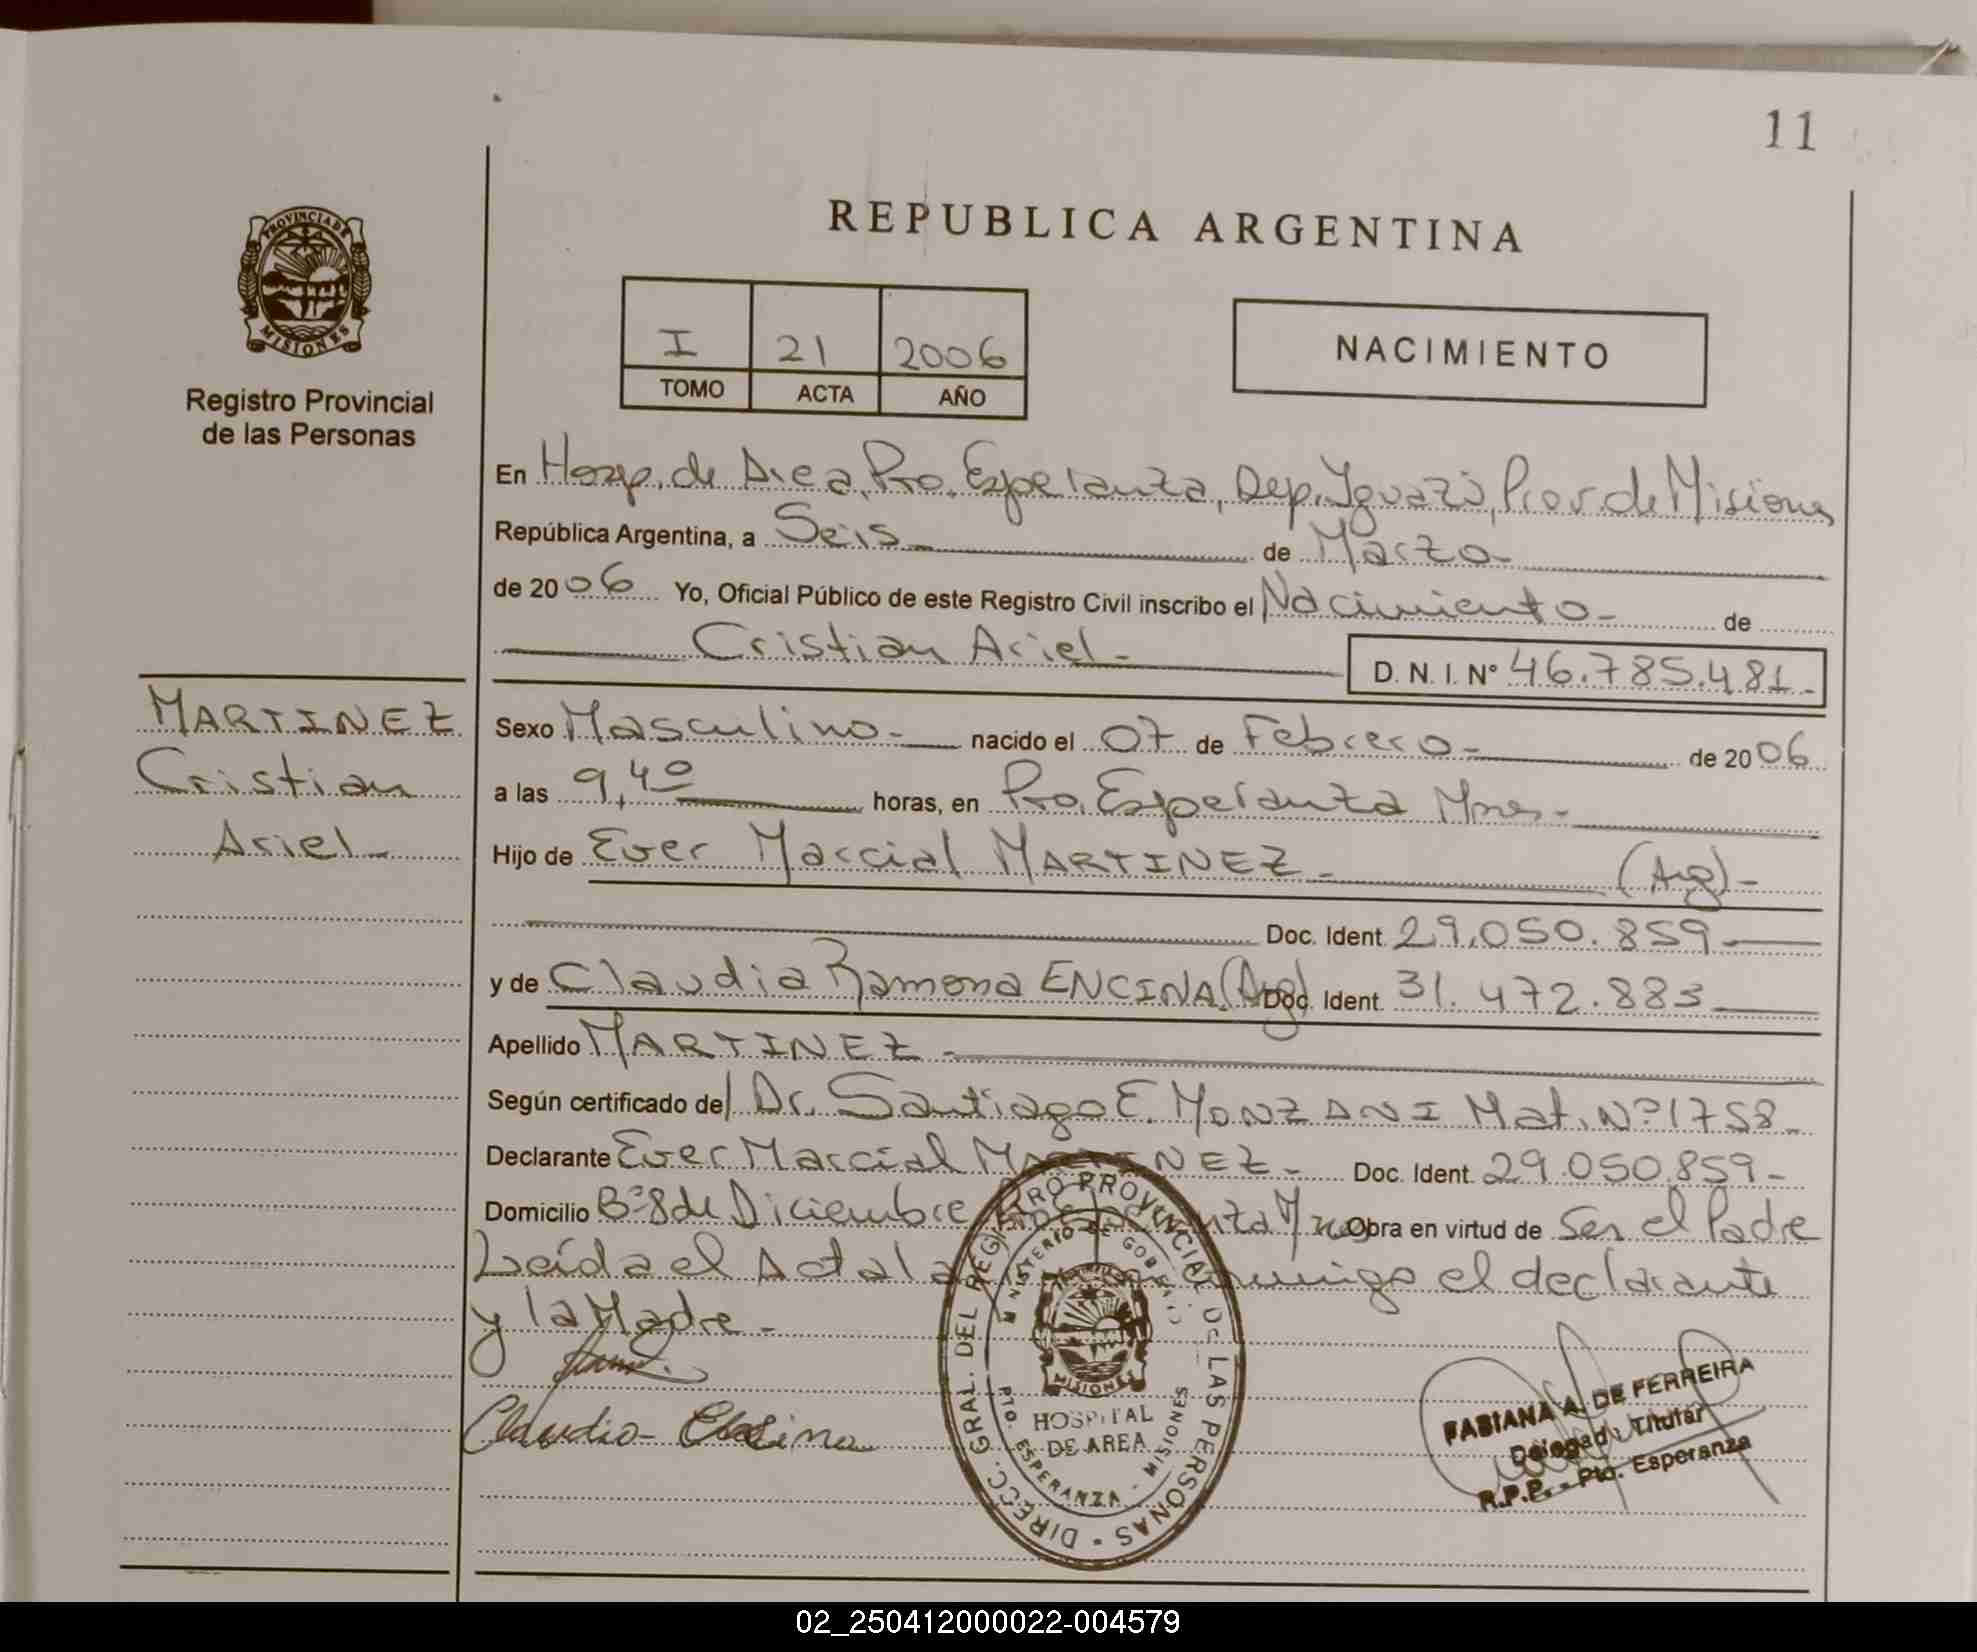 11
REPUBLICA ARGENTINA
PROVINCIA DE
MISIONES
Registro Provincial
de las Personas
I 21 2006
TOMO ACTA AÑO
NACIMIENTO
En Hosp. de Area, Pto. Esperanza, Dep. Iguazú, Prov. de Misiones
República Argentina, a Seis de Marzo
de 2006 Yo, Oficial Público de este Registro Civil inscribo el Nacimiento de
Cristian Ariel
D. N. I. N° 46.785.481
MARTINEZ
Cristian
Ariel
Sexo Masculino nacido el 07 de Febrero de 2006
a las 9,40 horas, en Pto. Esperanza Mnes
Hijo de Ever Marcial MARTINEZ (Arg)
Doc. Ident. 29.050.859
y de Claudia Ramona ENCINA (Arg) Doc. Ident. 31.472.883
Apellido MARTINEZ
Según certificado del Dr. Santiago E. MONZANI Mat. N° 1758
Declarante Ever Marcial MARTINEZ Doc. Ident. 29.050.859
Domicilio B° 8 de Diciembre Obra en virtud de Ser el Padre
Leída el Acta el declarante
y la Madre
DIRECC. GRAL. DEL REGISTRO PROVINCIAL DE LAS PERSONAS
MINISTERIO DE GOBIERNO
MISIONES
HOSPITAL
DE AREA
PTO. ESPERANZA - MISIONES
Claudia Encina
FABIANA A. DE FERREIRA
Delegada Titular
R.P.P. - Pto. Esperanza
02_250412000022-004579